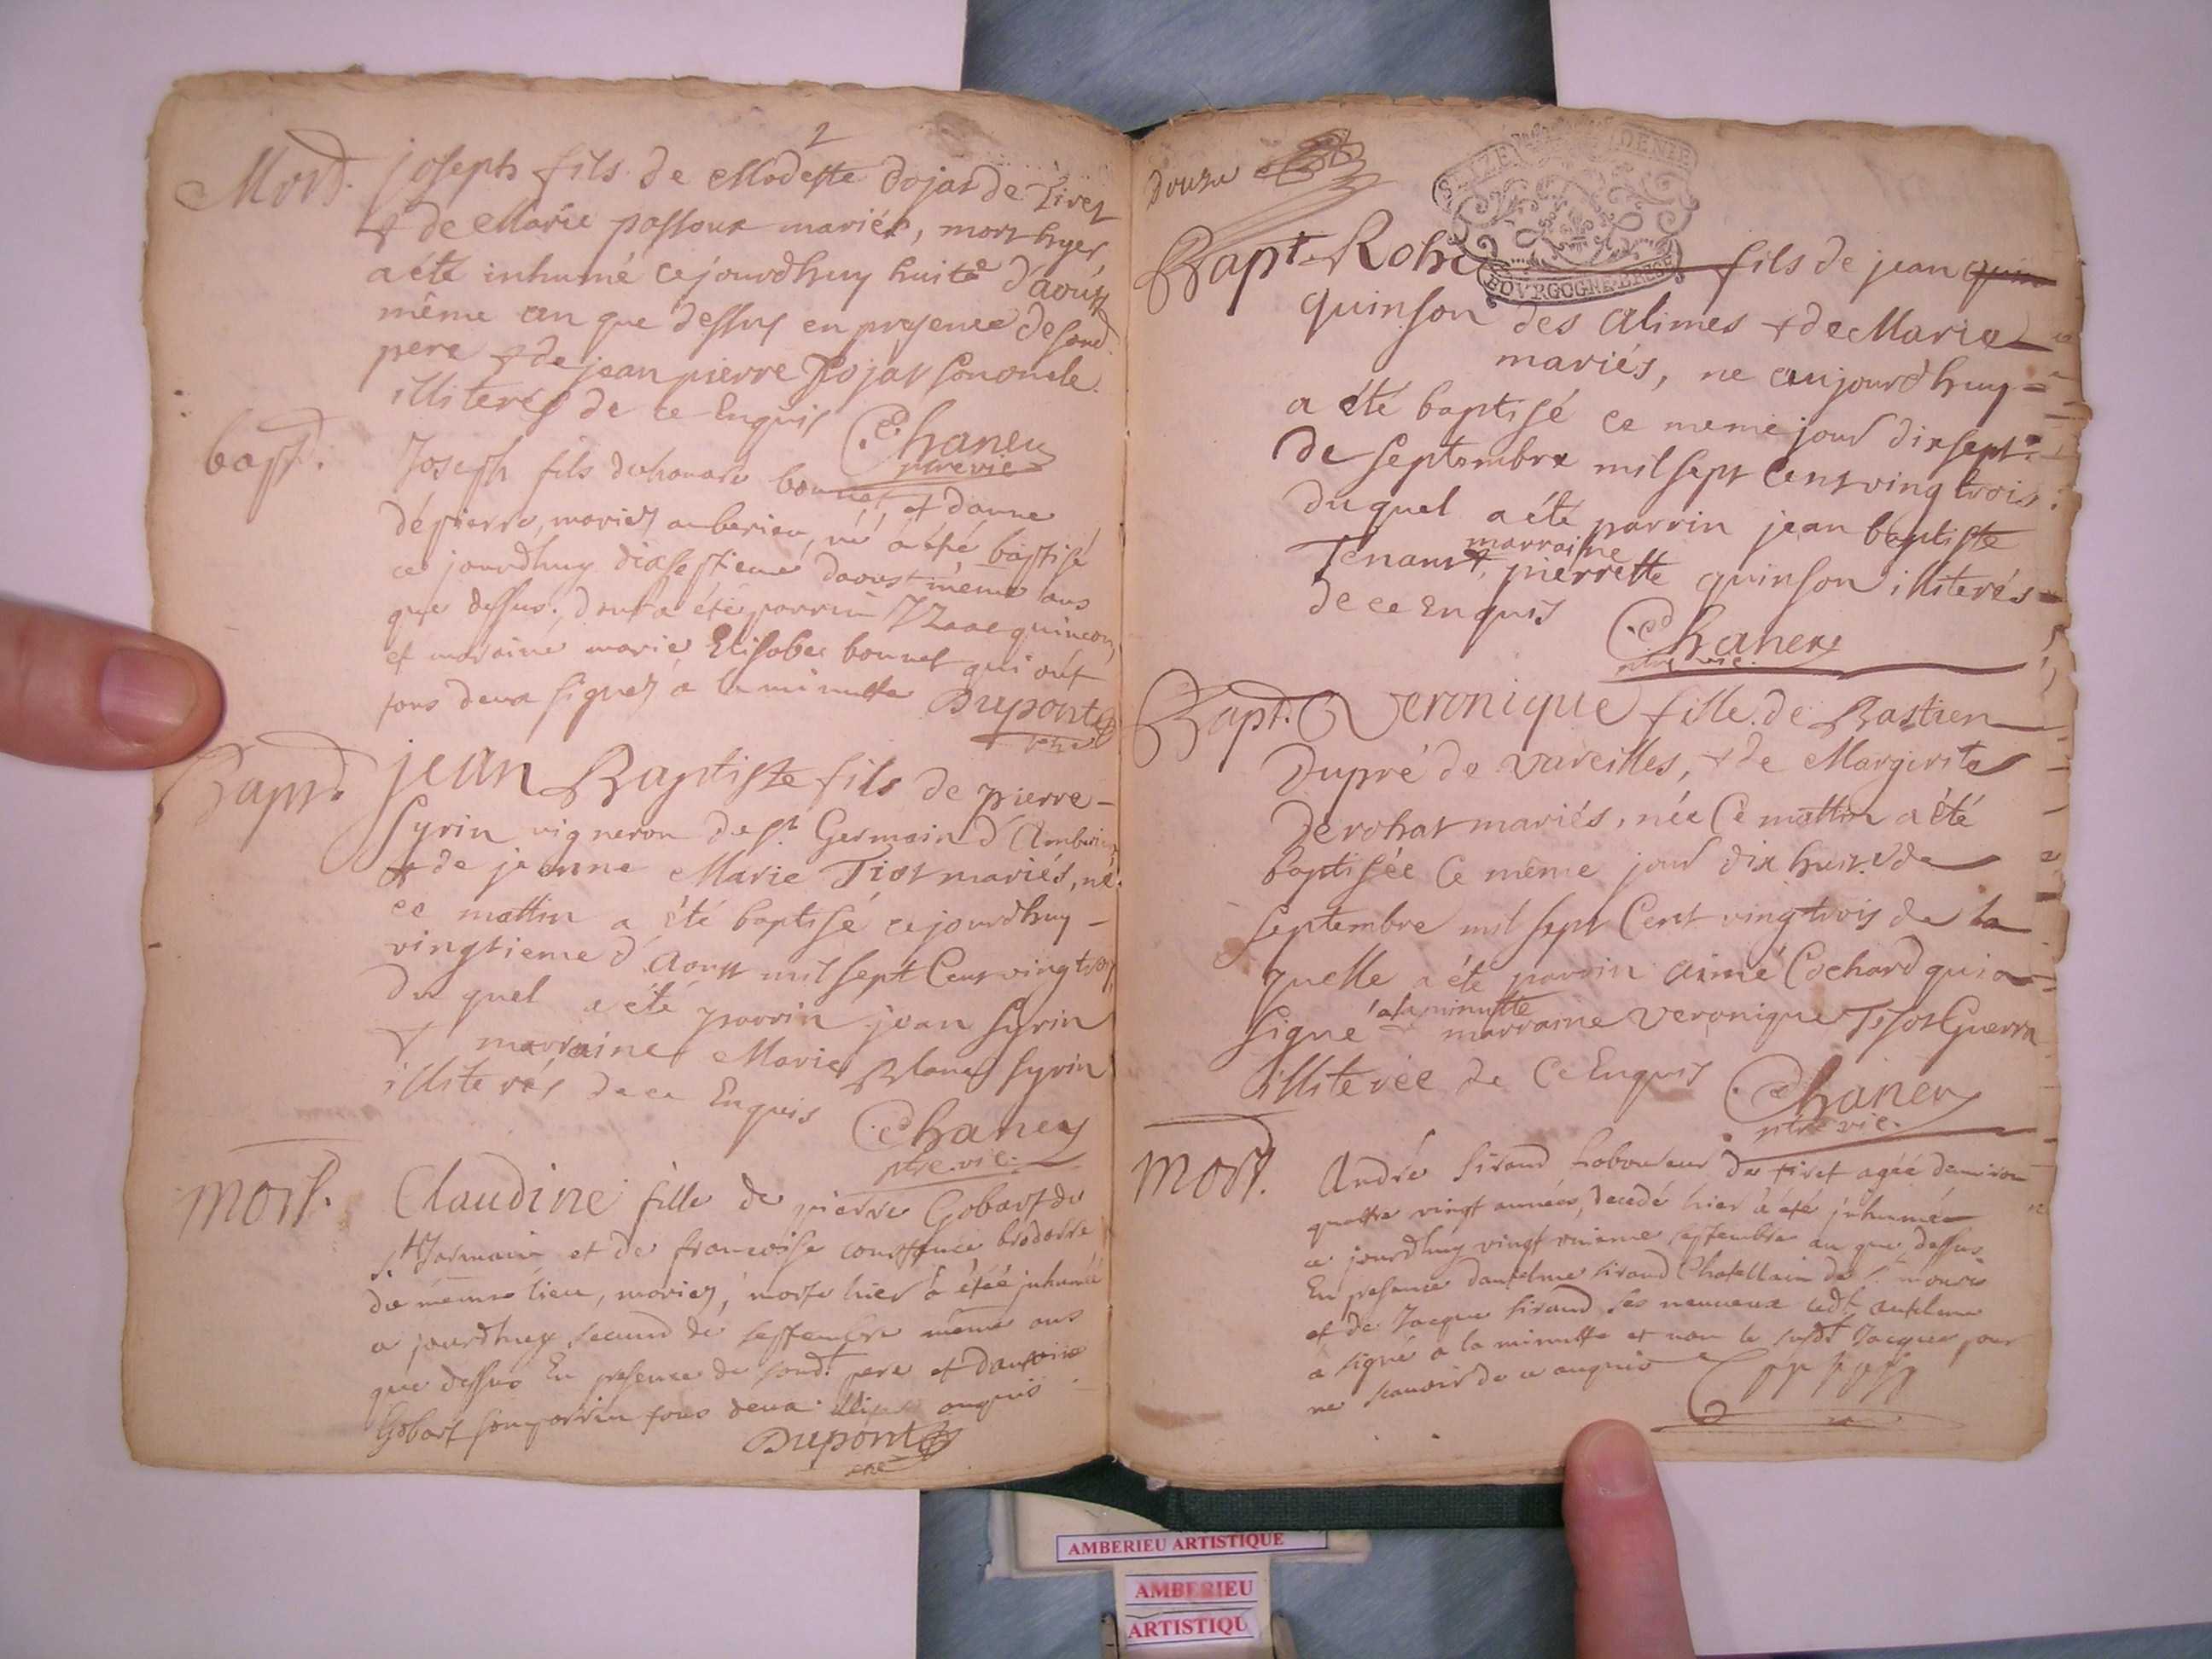 2
Mort. joseph fils de Modeste Dojat de Tiret
& de Marie passoux mariés, mort hyer
a été inhumé cejourdhuy huite d'aoust
même an que dessus en presence de sond.
pere & de jean pierre Dojat son oncle
illiterés de ce Enquis
Chaney
ptre vic
bapt. Joseph fils dehonoré bonnet, et danne
dépierre, mariez amberieu, né a été baptisé
ce jourdhuy dixseptieme daoust même ans
que dessus, dont a été parrin Izaac quincon
et maraine marie Elisabec bonnet qui ont
tous deux signez a la minutte Dupont
Bapt. jean Baptiste fils de pierre
Syrin vigneron de St. Germain d'Amberieu
& de jeanne Marie Tiot mariés, né
ce mattin a été baptisé cejourdhuy
vingtieme d'Aoust mil sept Cent vingt trois
du quel a été parrin jean Syrin
& marraine Marie Blanc Syrin
illiterés de ce Enquis Chaney
ptre vic.
mort. Claudine fille de pierre Gobart de
St. Jermain et de francoise constance
du mesme lieu, mariez, morte hier a étéé inhumée
ce jourdhuy second de septembre même ans
que dessus En presence de sondt. pere et dantoine
Gobart son parrin tous deux enquis
Dupont
Douze
SEIZE DENIE
BOURGOGNE BRESSE
Bapt. fils de jean quin
quinson des Alimes & de Marie
mariés, né aujourdhuy
a été baptisé ce meme jour dixsept
de septembre mil sept Cent vingt trois
duquel a été parrin jean baptiste
marraine
Tenant, & pierrette quinson illiterés
de ce Enquis
Chaney
ptre vic.
Bapt. Veronique fille de Bastien
Dupré de Vareilles, & de Margerite
Derohat mariés, née Ce mattin a été
baptisée Ce même jour dix huit. de
septembre mil sept Cent vingt trois de la
quelle a été parrin aimé Cochard qui a
a la minutte
signé & marraine Veronique Tisot Guerra
illiterée de Ce Enquis Chaney
ptre vic.
mort. André Sirand Laboureur de tiret agéé denviron
quattre vingt années, decedé hier a été inhumée
ce jourdhuy vingt septembre an que dessus
En presence dantelme Sirand Chatellain de St.
et de Jacque Sirand ses neuveux ledt. antelme
a signé a la minutte et non le susdt. Jacque pour
ne scauoir de ce enquis
AMBERIEU ARTISTIQUE
AMBERIEU
ARTISTIQU